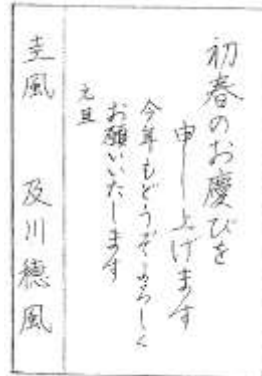 初春のお慶びを
申し上げます
今年もどうぞよろしく
お願いいたします
元旦
圭風 及川穂風